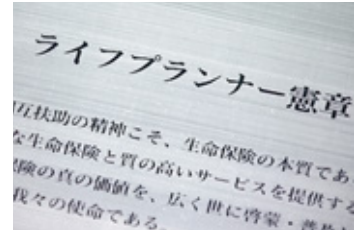 ライフプランナー憲章
互扶助の精神こそ、生命保険の本質であ
な生命保険と質の高いサービスを提供する
保険の真の価値を、広く世に啓蒙・普及
我々の使命である。